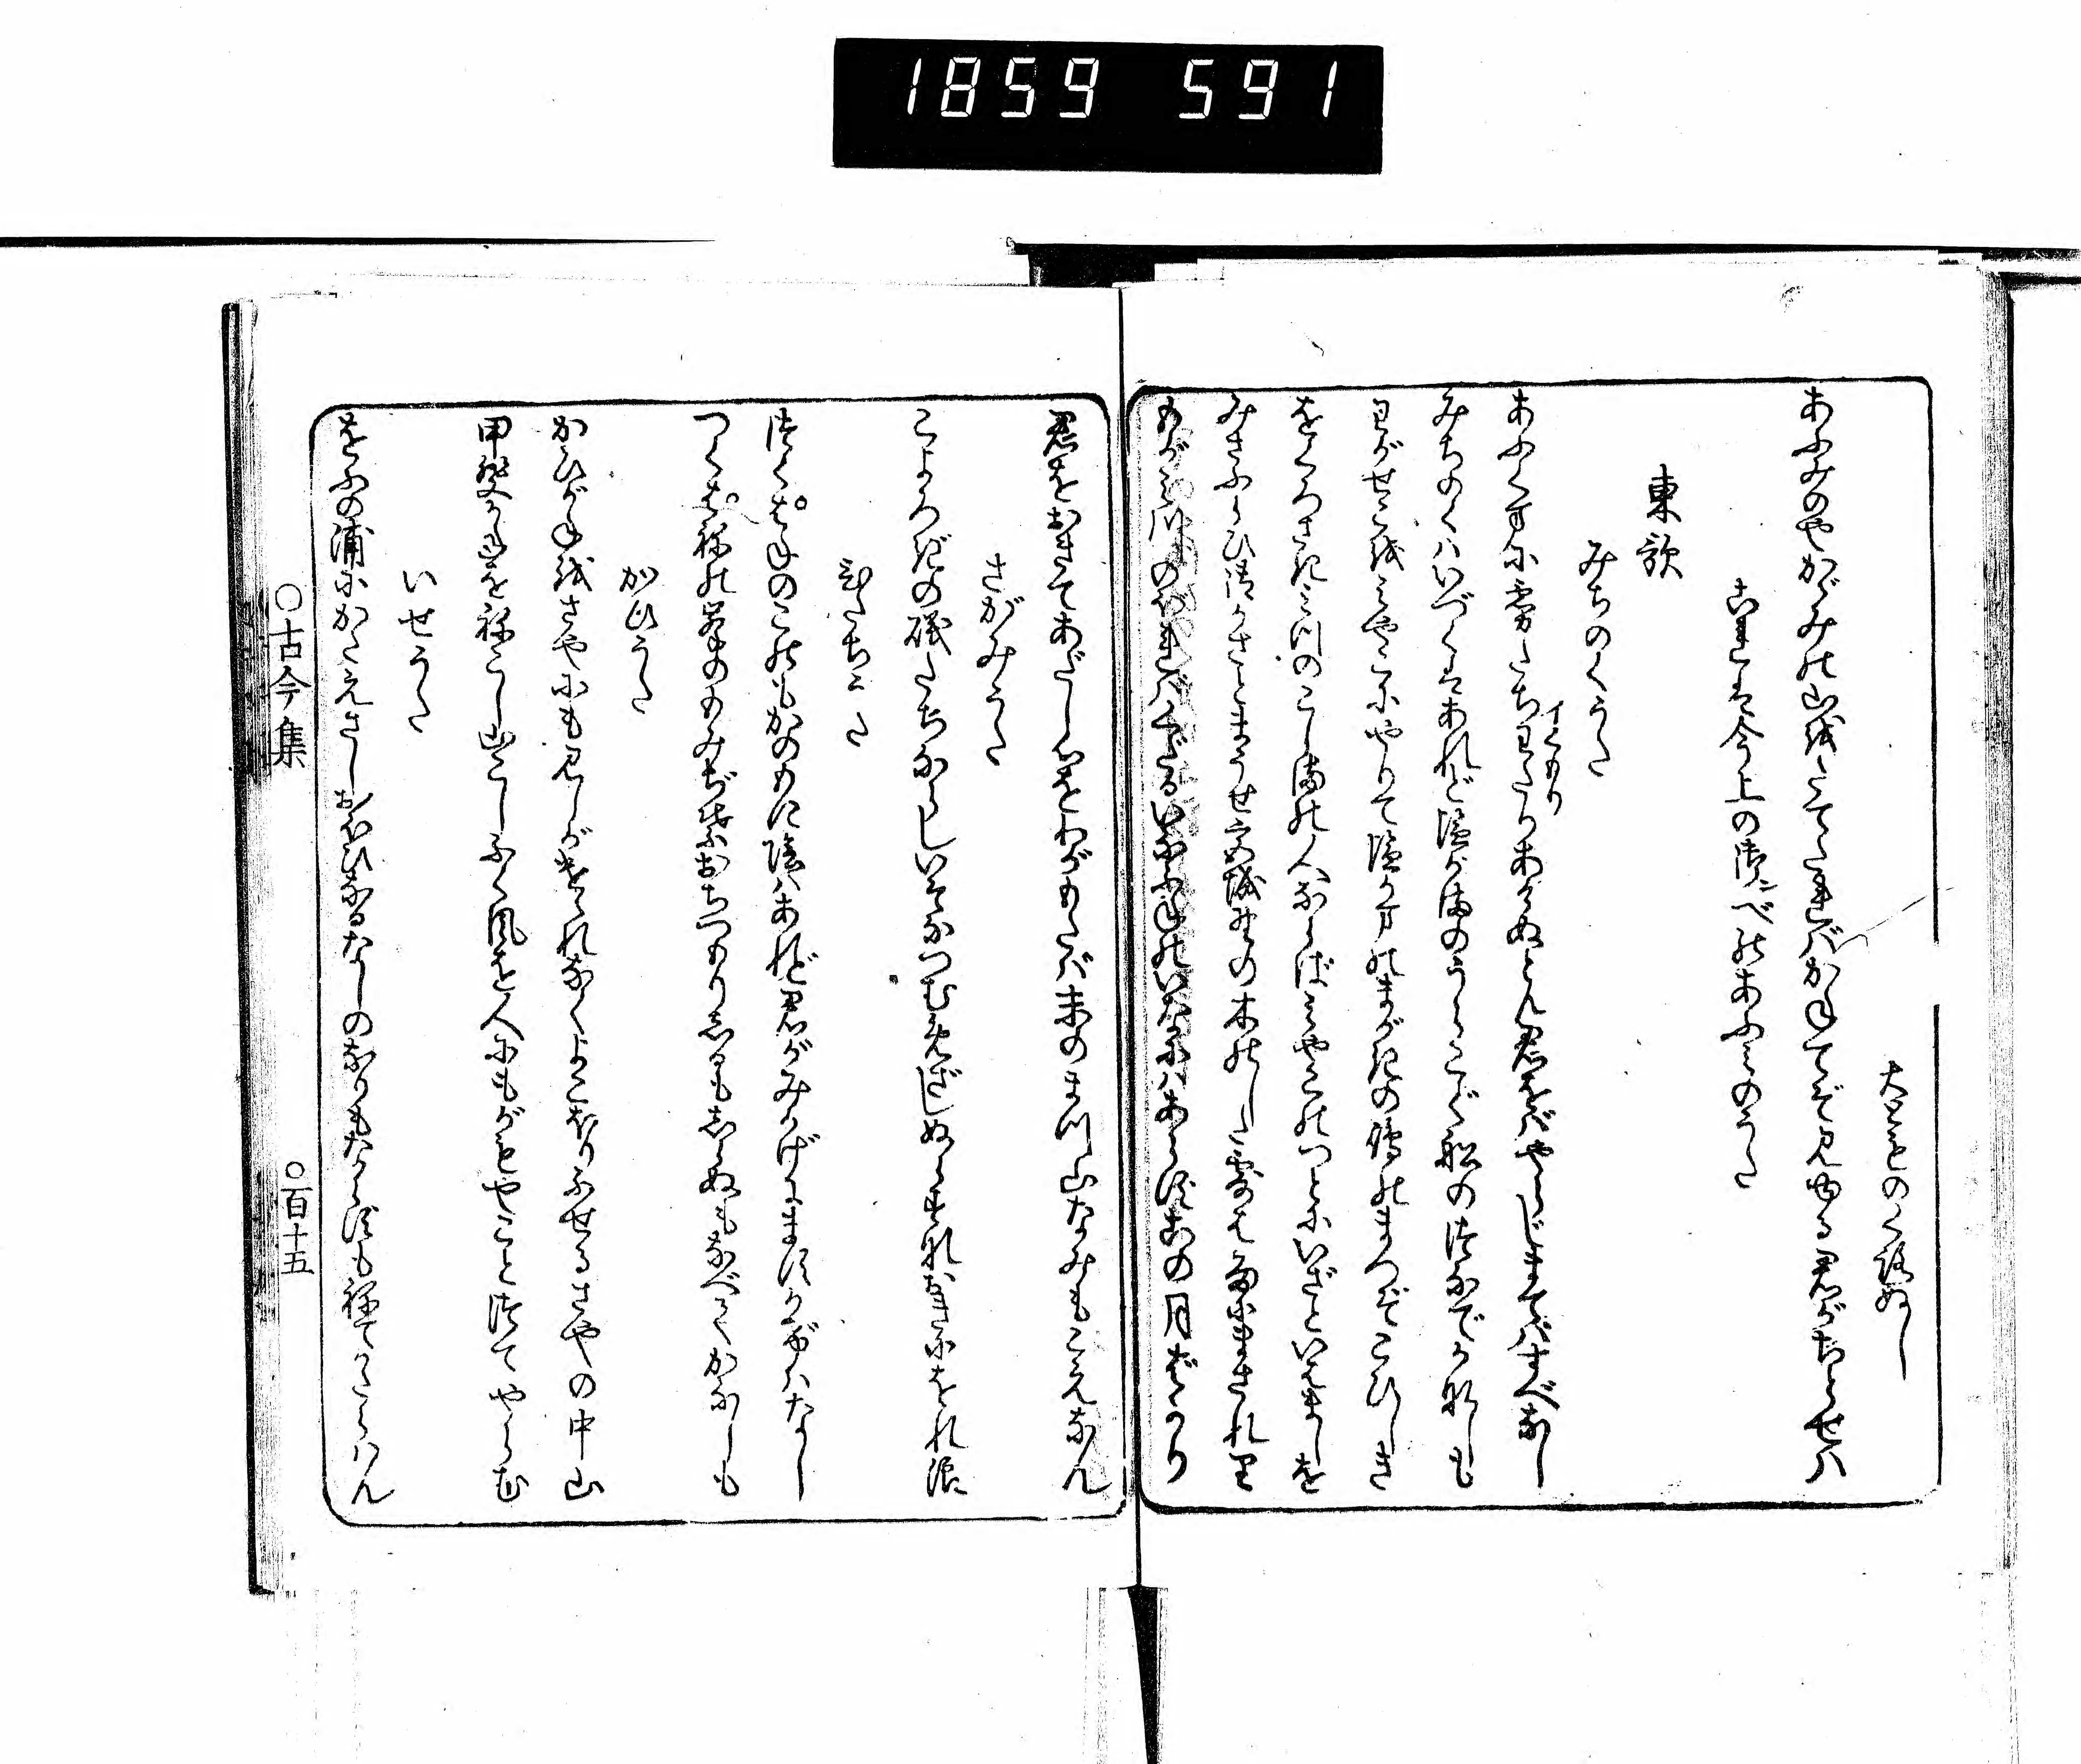 1859 591
大とものくろぬし
あふみのやかゞみの山をたてたればかねてぞ見ゆる君がちとせハ
これは今上の御べのあふみのうた
東歌
みちのくうた
あふくまに霧たちわたりあけぬとも君をばやらじまてバすべなし
イくもり
みちのくハいづくはあれど塩がまのうらこぐ舩のつなでかなしも
わがせこをみやこにやりて塩がまのまがきの嶋のまつぞこひしき
をぐろさきみつのこじまの人ならばみやこのつとにいざといはましを
みさふらひ御かさとまうせ宮城野の木のした露は雨にまされり
もがみ川のぼればくだるいな舟のいなにハあらずこの月ばかり
君をおきてあだし心をわがもたバ末のまつ山なみもこえなん
さがみうた
こよろぎの磯たちならしいそなつむめざしぬらすなおきにをれ浪
ひたちうた
つくばねのこのもかのもに陰ハあれど君がみかげにますかげハなし
つくばねの峯のもみぢ葉おちつもりしるもしらぬもなべてかなしも
かひうた
かひがねをさやにも見しがけゝれなくよこほりふせるさやの中山
甲斐がねをねこし山こしふく風を人にもがもやことつてやらむ
いせうた
をふの浦にかたえさしおほひなるなしのなりもならずもねてかたらハん
○古今集
○百十五